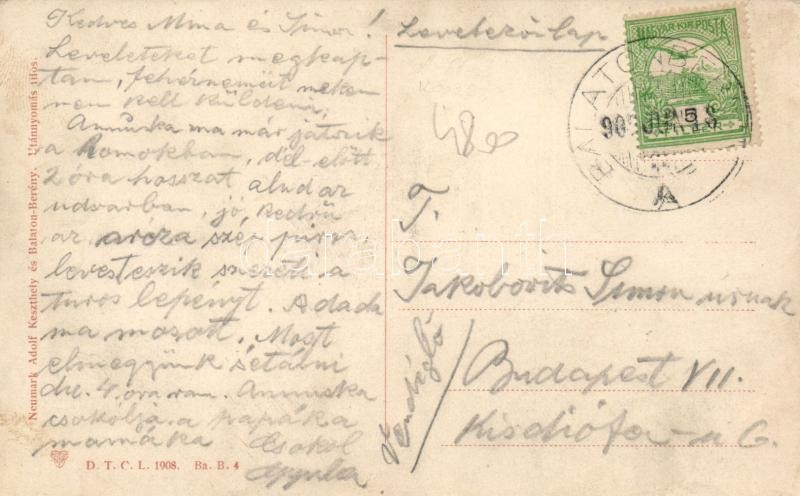 Kedves Mina és Simon!
Leveleteket megkap-
tam, fehérneműt nekem
nem kell küldeni,
Annuska ma már játszik
a homokban, dél-előtt
2 óra hosszat alud az
udvarban, jó kedvű
az arcza szép piros
levesteszik szereti a
turos lepényt. A dada
ma mosott. Most
elmegyünk sétálni
du. 4 óra van. Annuska
csokolja a papáka
mamáka Csokol
Gyula
Levelezőlap
MAGYAR KIR. POSTA
BALATONBER
A
480
T.
Jakobovits Simon úrnak
Vendéglő
Budapest VII.
Kisdiófa-u 6.
Neumark Adolf Keszthely és Balaton-Berény. Utánnyomás tilos.
D. T. C. L. 1908. Ba. B. 4
darabanth